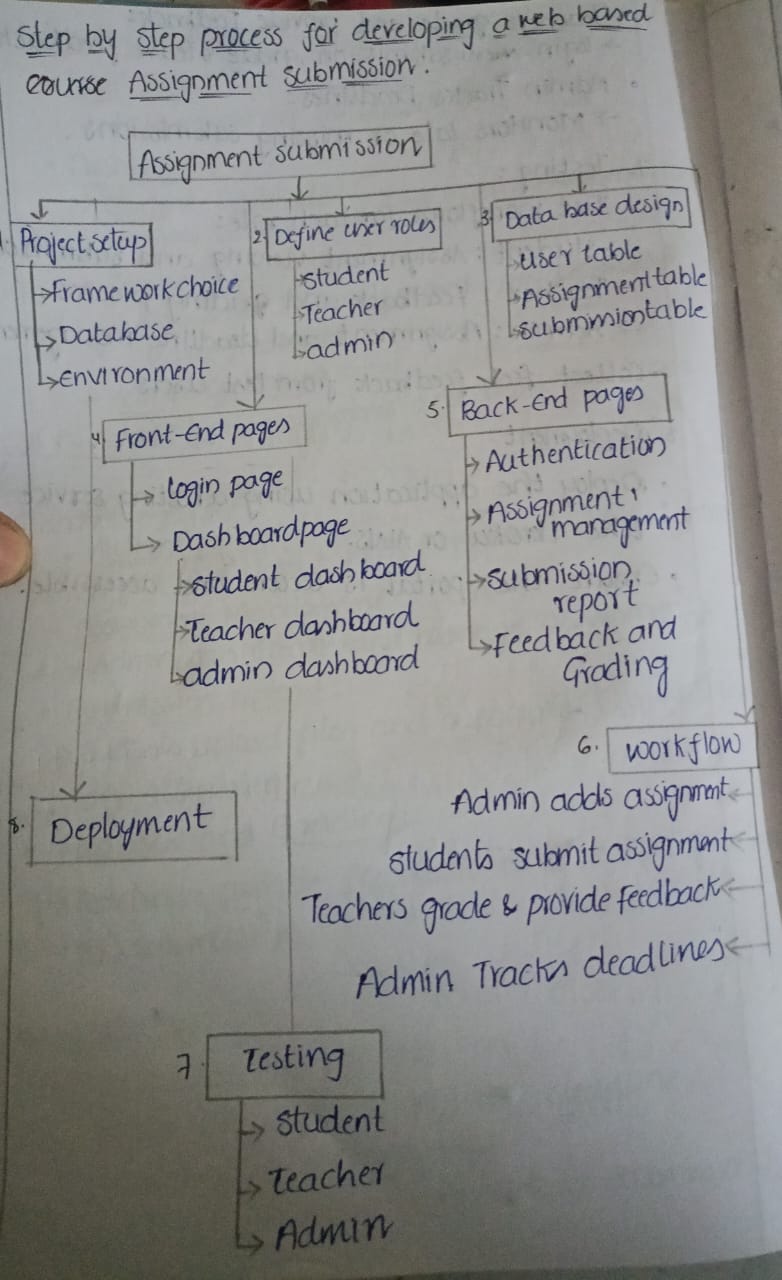 Step by step process for developing a web based
course Assignment submission.
Assignment submission
1. Project setup
→Framework choice
→Database
→environment
2. Define user roles
→student
→Teacher
→admin
3. Data base design
→user table
→Assignment table
→submmiontable
4. Front-End pages
→ login page
→ Dashboard page
→student dashboard
→Teacher dashboard
→admin dashboard
5. Back-End pages
→Authentication
→Assignment
management
→submission
report
→Feedback and
Grading
6. workflow
Admin adds assignment
students submit assignment
Teachers grade & provide feedback
Admin Tracks deadlines
7. Testing
→ student
→ Teacher
→ Admin
8. Deployment